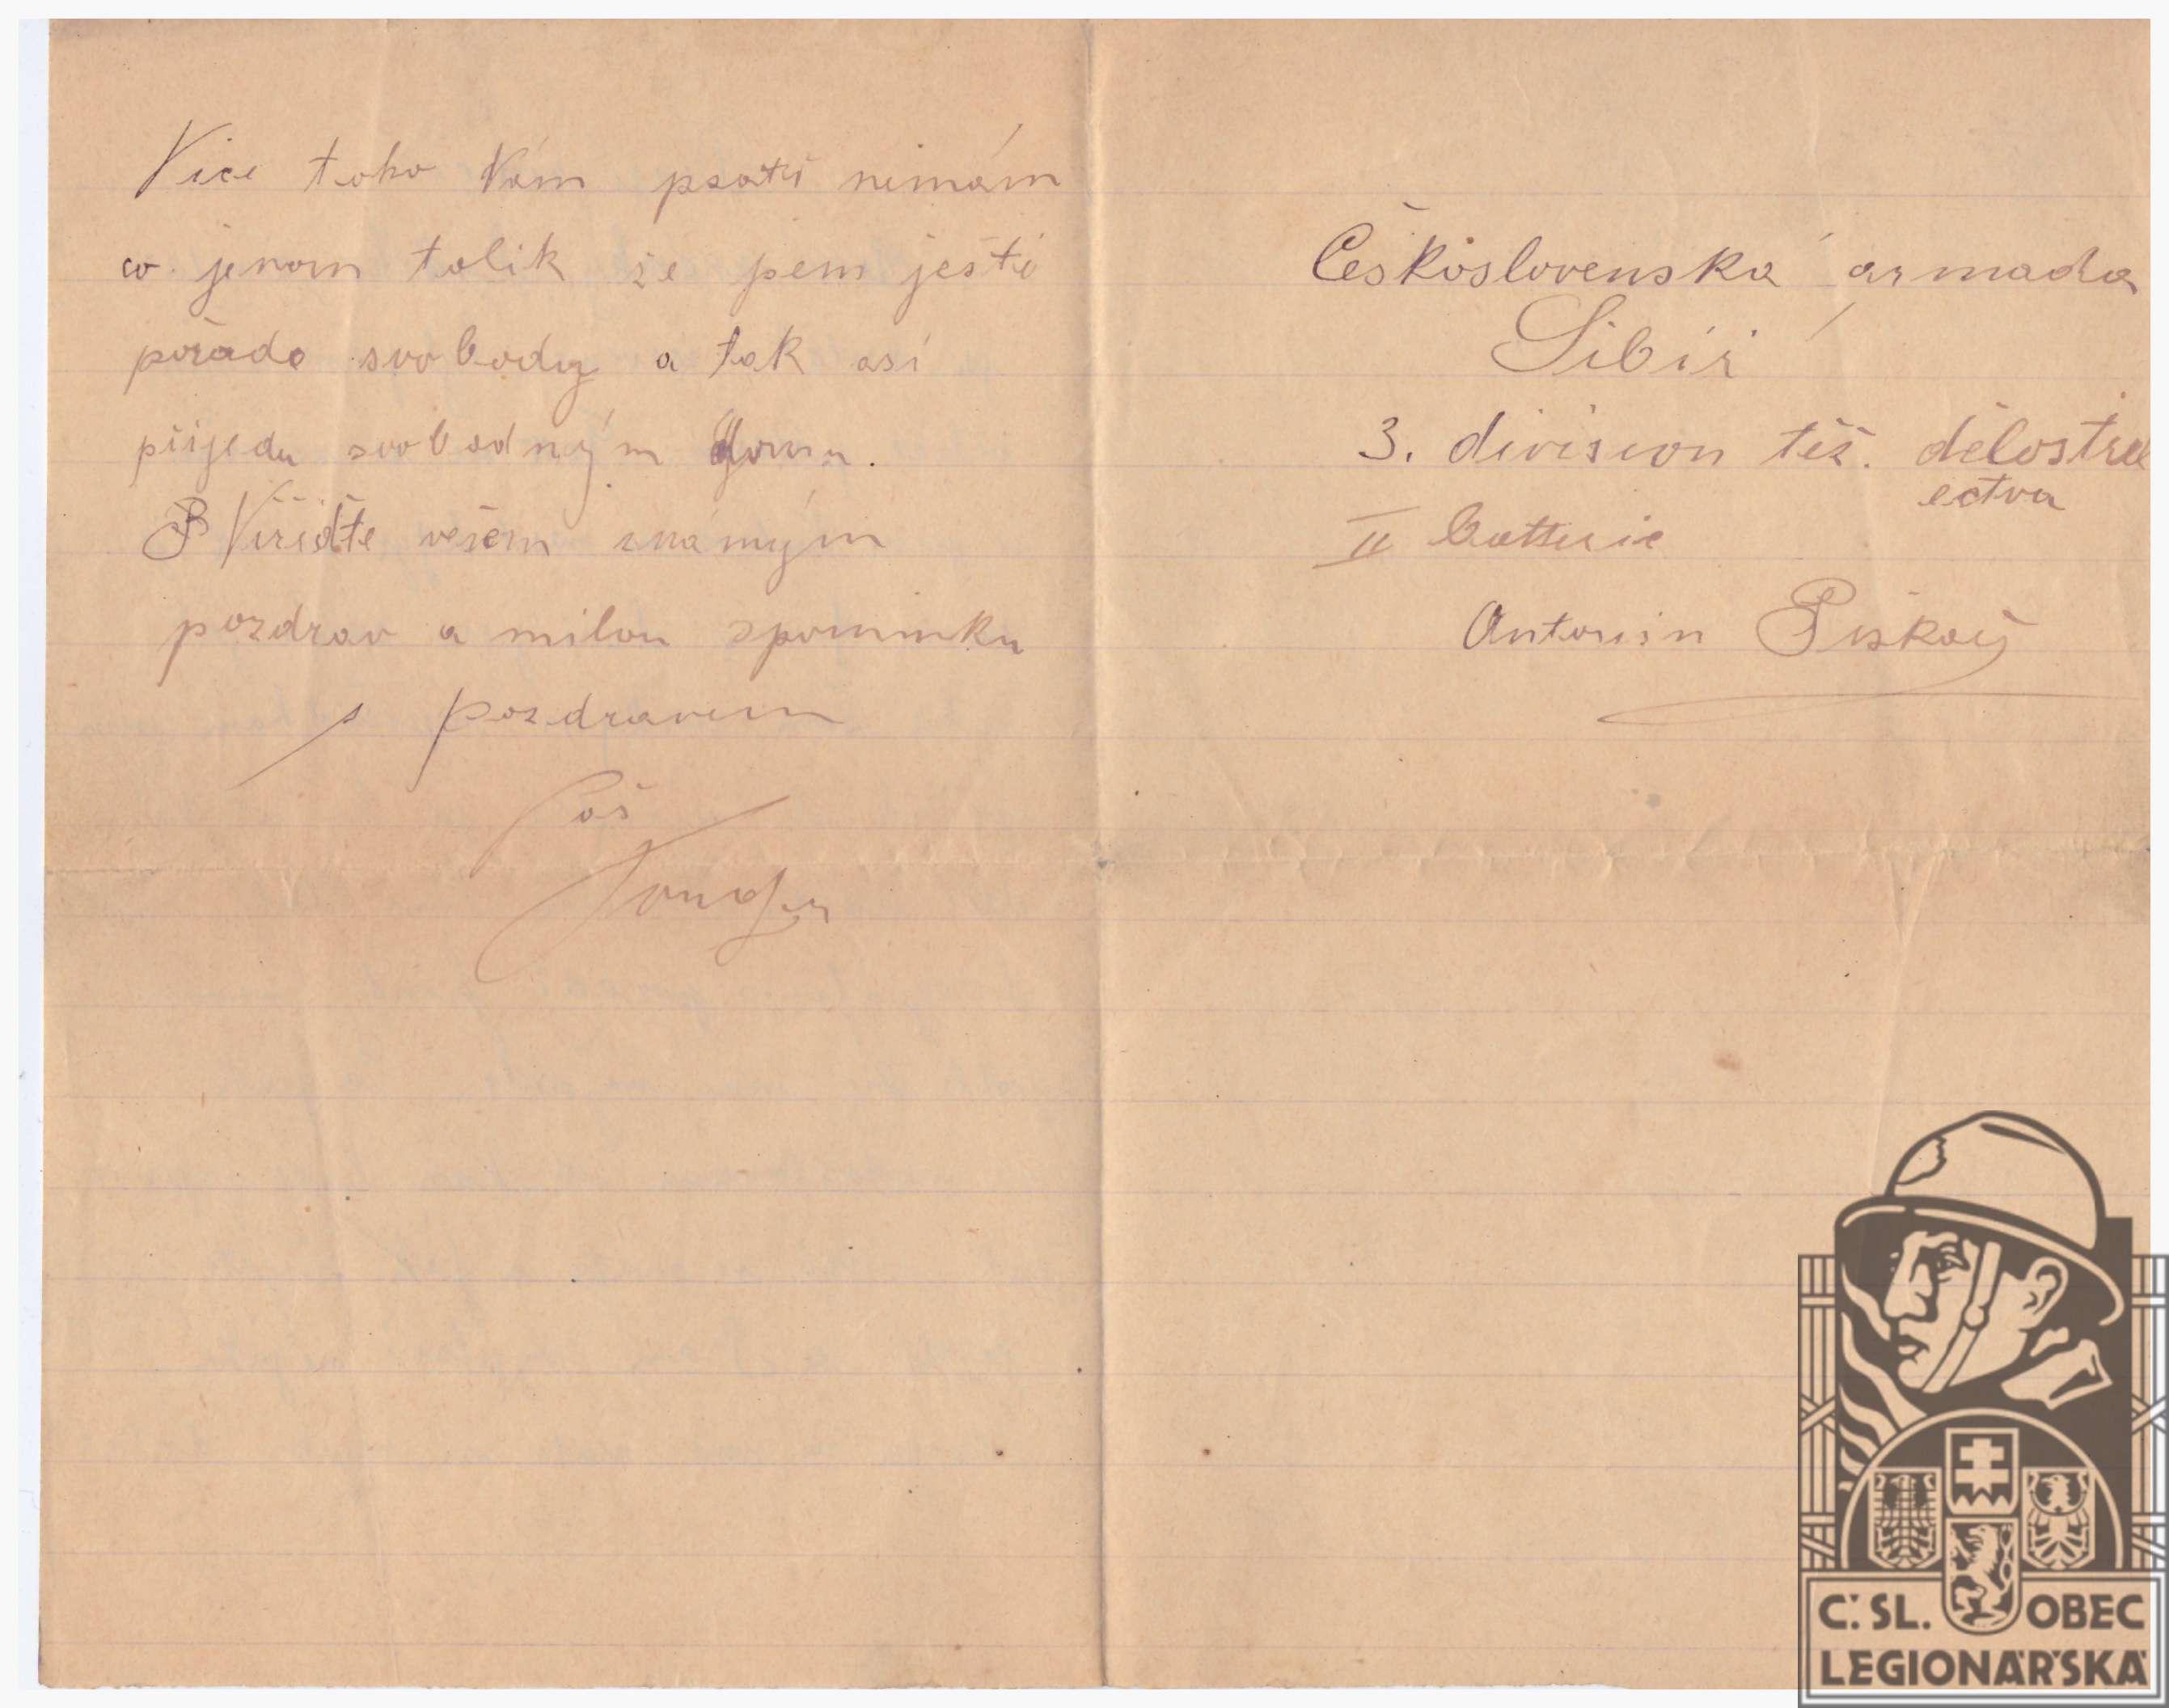 Více toho Vám psáti nemám
co jenom tolik že jsem ještě
pořade svobodný a tak asi
přijedu svobodným domu.
Viřidťe všem známým
pozdrav a milou spominku
s pozdravem
Váš
Českoslovenká armada
Sibiř
3. division těž. dělostřel
ectva
II batterie
Antonin Piskač
Č. SL. OBEC
LEGIONÁŘSKÁ